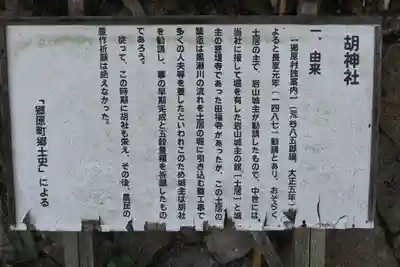 胡神社
一．由来
「郷原村独案内」(荒谷八五郎編、大正五年)に
よると長享元年(一四八七)勧請とあり、おそらく
土居の主で、岩山城主が勧請したもので、中世には、
当社に接して堀を有した岩山城主の館(土居)と城
主の菩提寺であった田福寺があったが、この土居の
築造は黒瀬川の流れを土居の堀に引き込む難工事で
多くの人夫等を要したといわれこのため城主は胡社
を勧請し、事の早期完成と五穀豊穣を祈願したもの
であろう。
従って、この時期に胡社も栄え、その後、農民の
豊作祈願は絶えなかった。
「郷原町郷土史」による